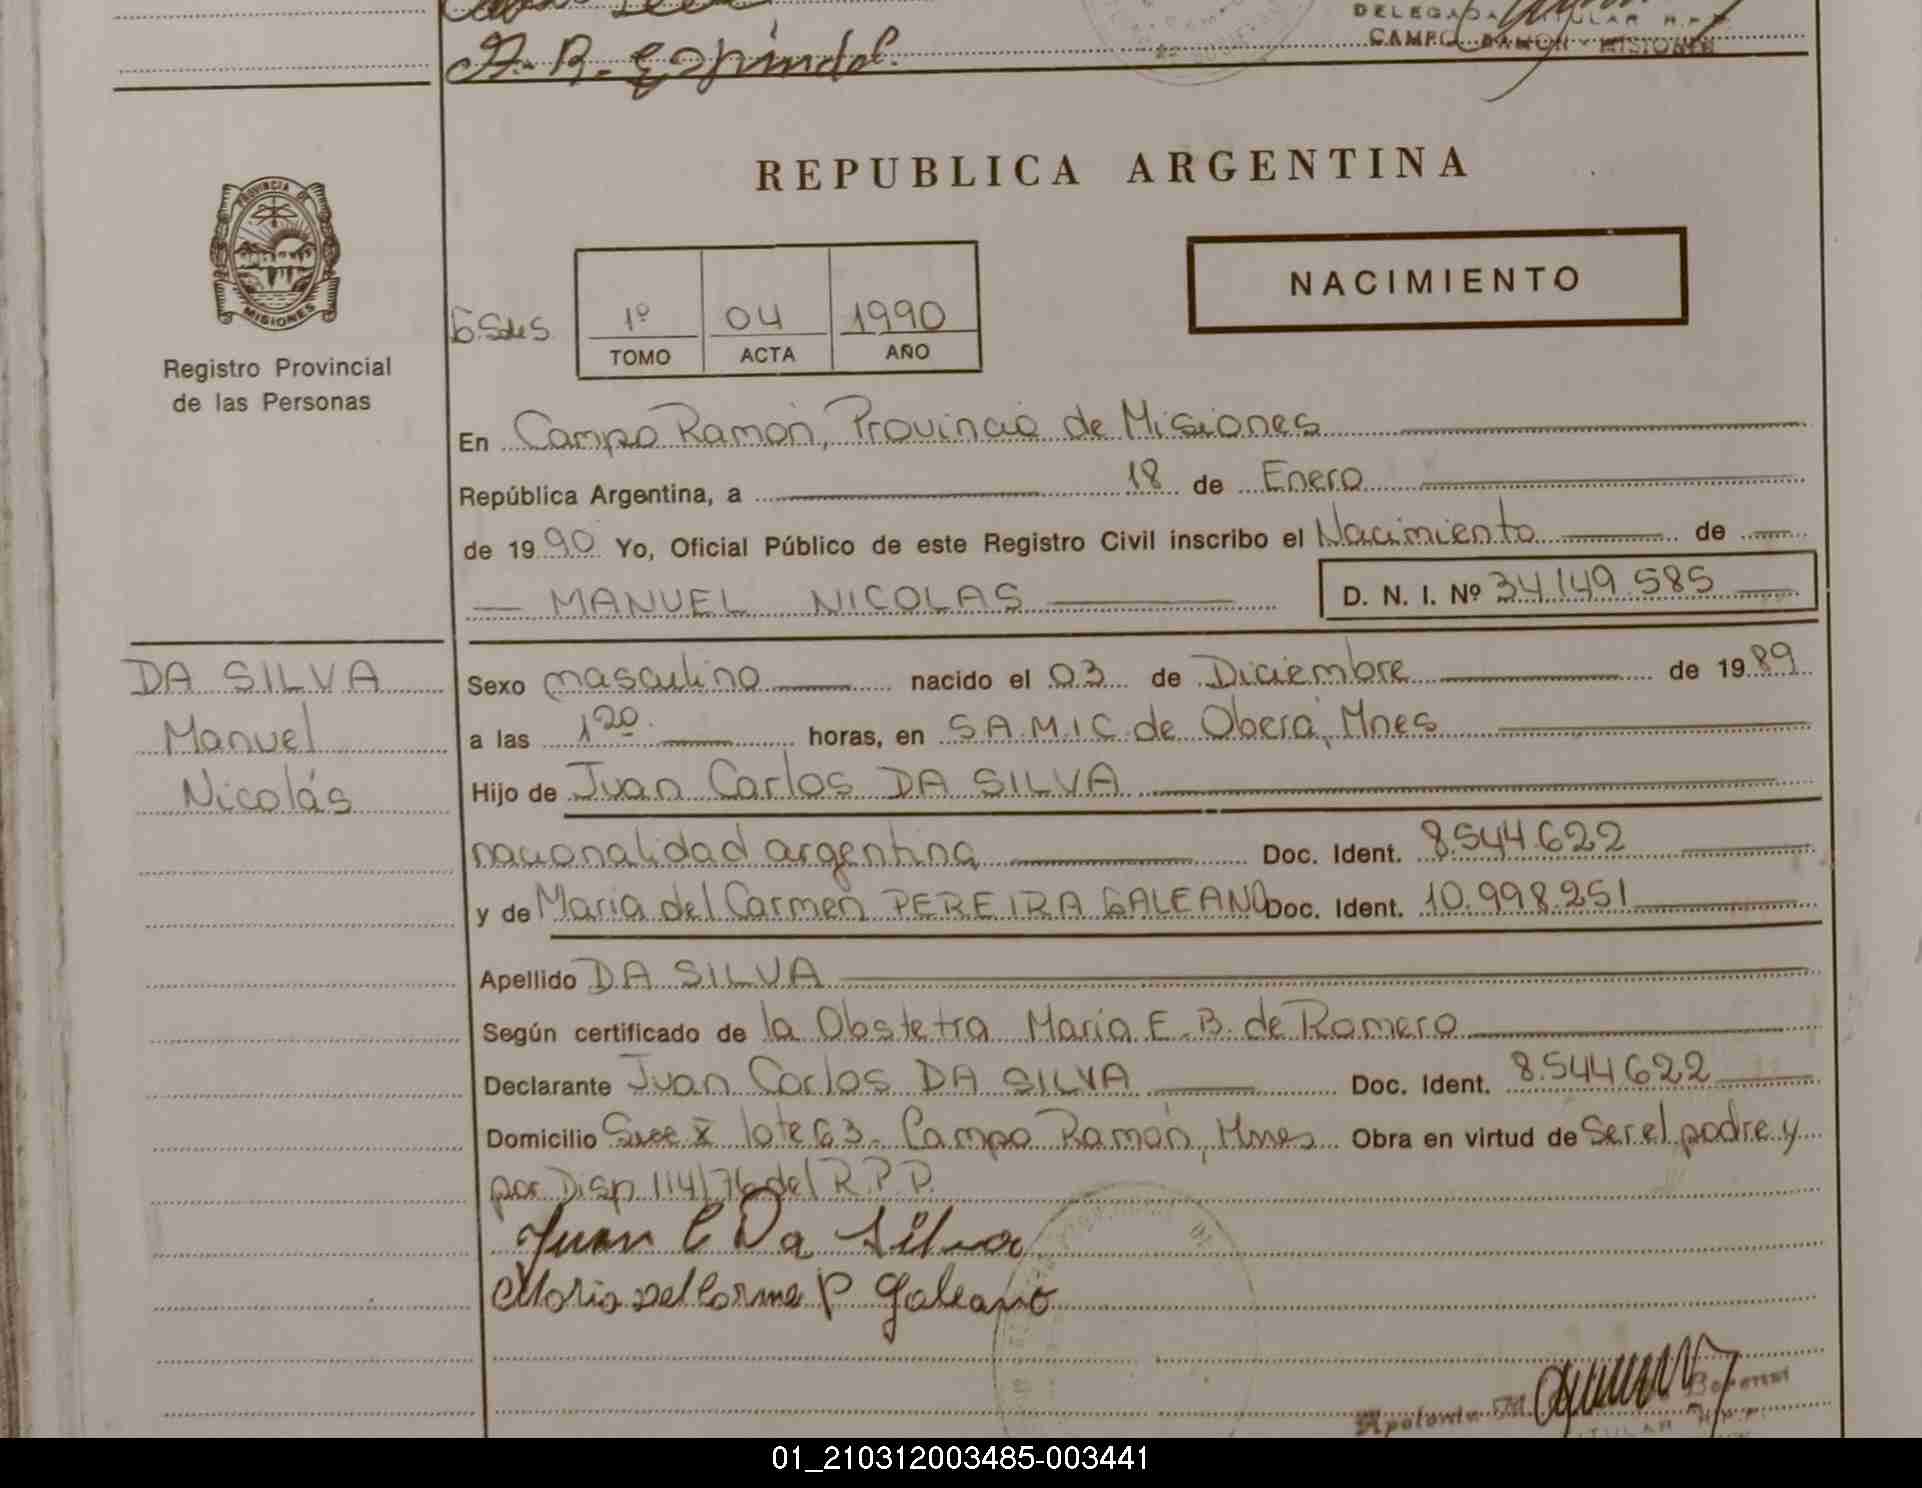 A. R. Espindol.
DELEGADA TITULAR R.P.P.
CAMPO RAMON - MISIONES
PROVINCIA DE
MISIONES
Registro Provincial
de las Personas
REPUBLICA ARGENTINA
NACIMIENTO
1º 04 1990
TOMO ACTA AÑO
En Campo Ramón, Provincia de Misiones
República Argentina, a 18 de Enero
de 1990 Yo, Oficial Público de este Registro Civil inscribo el Nacimiento de
MANUEL NICOLAS D. N. I. Nº 34.149.585
DA SILVA
Manuel
Nicolás
Sexo masculino nacido el 03 de Diciembre de 1989
a las 1 20 horas, en S.A.M.I.C. de Oberá, Mnes
Hijo de Juan Carlos DA SILVA
nacionalidad argentina Doc. Ident. 8.544.622
y de María del Carmen PEREIRA GALEANO Doc. Ident. 10.998.251
Apellido DA SILVA
Según certificado de la Obstetra María E. B. de Romero
Declarante Juan Carlos DA SILVA Doc. Ident. 8.544.622
Domicilio lote 63 - Campo Ramón, Mnes Obra en virtud de Ser el padre y
por Disp. 114/76 del R.P.P.
Juan C Da Silva
Maria Del Carme P Galeano
01_210312003485-003441